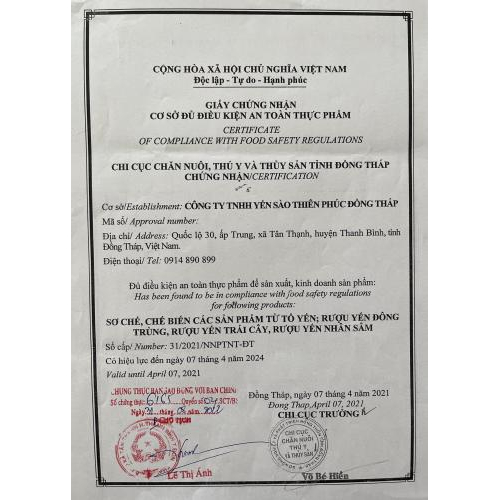 CỘNG HÒA XÃ HỘI CHỦ NGHĨA VIỆT NAM
Độc lập - Tự do - Hạnh phúc
GIẤY CHỨNG NHẬN
CƠ SỞ ĐỦ ĐIỀU KIỆN AN TOÀN THỰC PHẨM
CERTIFICATE
OF COMPLIANCE WITH FOOD SAFETY REGULATIONS
CHI CỤC CHĂN NUÔI, THÚ Y VÀ THỦY SẢN TỈNH ĐỒNG THÁP
CHỨNG NHẬN/CERTIFICATION
Cơ sở/Establishment: CÔNG TY TNHH YẾN SÀO THIÊN PHÚC ĐỒNG THÁP
Mã số/ Approval number:
Địa chỉ/ Address: Quốc lộ 30, ấp Trung, xã Tân Thạnh, huyện Thanh Bình, tỉnh
Đồng Tháp, Việt Nam.
Điện thoại/ Tel: 0914 890 899
Đủ điều kiện an toàn thực phẩm để sản xuất, kinh doanh sản phẩm:
Has been found to be in compliance with food safety regulations
for following products:
SƠ CHẾ, CHẾ BIẾN CÁC SẢN PHẨM TỪ TỔ YẾN; RƯỢU YẾN ĐÔNG
TRÙNG, RƯỢU YẾN TRÁI CÂY, RƯỢU YẾN NHÂN SÂM
Số cấp/ Number: 31/2021/NNPTNT-ĐT
Có hiệu lực đến ngày 07 tháng 4 năm 2024
Valid until April 07, 2021
CHỨNG THỰC BẢN SAO ĐÚNG VỚI BẢN CHÍNH
Số chứng thực: Quyển số: SCT/BS
Ngày tháng năm
Đồng Tháp, ngày 07 tháng 4 năm 2021
Dong Thap, April 07, 2021
CHI CỤC TRƯỞNG
CHI CỤC
CHĂN NUÔI
THÚ Y
VÀ THỦY SẢN
Lê Thị Ánh
Võ Bé Hiền